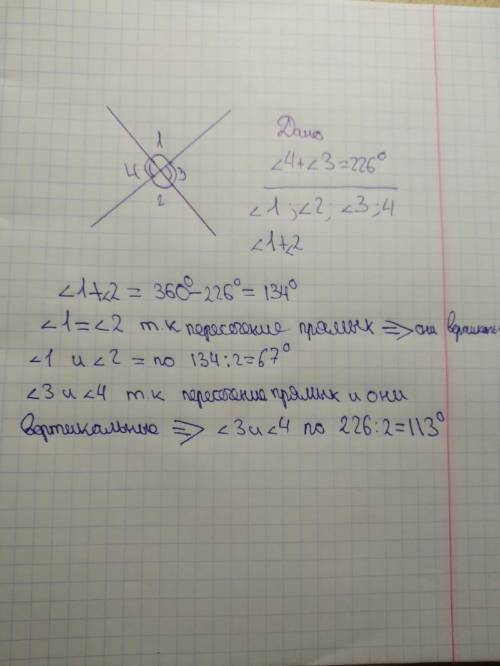 1
4 3
2
Дано
∠4+∠3=226°
∠1;∠2; ∠3;4
∠1+∠2
∠1+∠2 = 360°-226°=134°
∠1=∠2 т к пересечение прямых => они
∠1 и ∠2 = по 134:2=67°
∠3 и ∠4 т к пересечение прямых и они
вертикальные => ∠3 и ∠4 по 226:2=113°